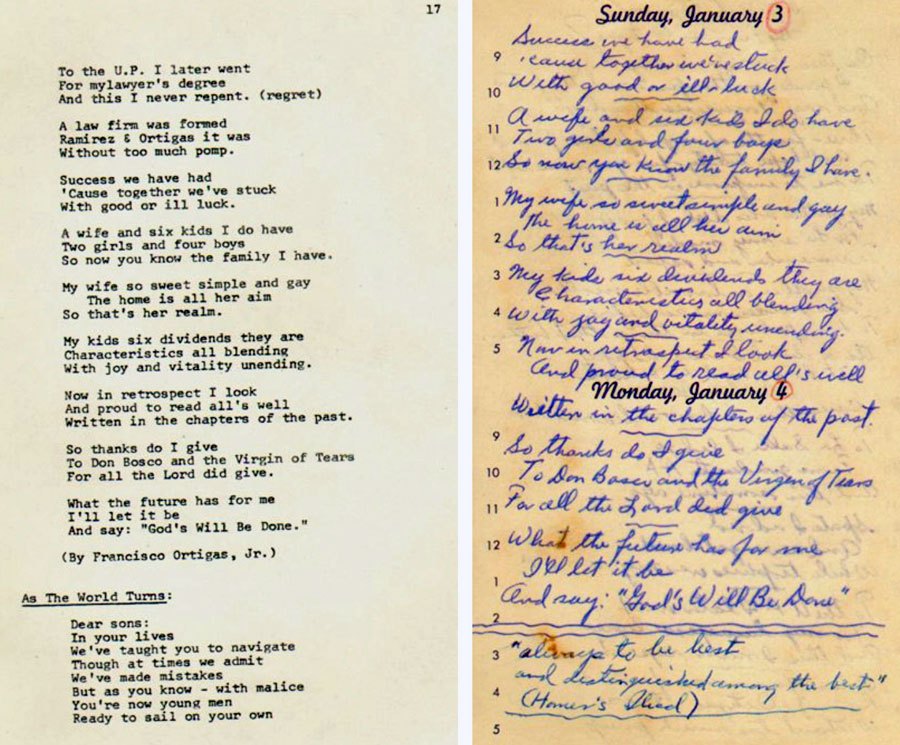 17
To the U.P. I later went
For mylawyer's degree
And this I never repent. (regret)
A law firm was formed
Ramirez & Ortigas it was
Without too much pomp.
Success we have had
'Cause together we've stuck
With good or ill luck.
A wife and six kids I do have
Two girls and four boys
So now you know the family I have.
My wife so sweet simple and gay
The home is all her aim
So that's her realm.
My kids six dividends they are
Characteristics all blending
With joy and vitality unending.
Now in retrospect I look
And proud to read all's well
Written in the chapters of the past.
So thanks do I give
To Don Bosco and the Virgin of Tears
For all the Lord did give.
What the future has for me
I'll let it be
And say: "God's Will Be Done."
(By Francisco Ortigas, Jr.)
As The World Turns:
Dear sons:
In your lives
We've taught you to navigate
Though at times we admit
We've made mistakes
But as you know - with malice
You're now young men
Ready to sail on your own
Sunday, January 3
Success we have had
9 'cause together we've stuck
10 With good or ill-luck
A wife and six kids I do have
11 Two girls and four boys
12 So now you know the family I have.
1 My wife so sweet simple and gay
The home is all her aim
2 So that's her realm
3 My kids six dividends they are
Characteristics all blending
4 With joy and vitality unending.
5 Now in retrospect I look
And proud to read all's well
Monday, January 4
Written in the chapters of the past.
9 So thanks do I give
10 To Don Bosco and the Virgen of Tears
11 For all the Lord did give
12 What the future has for me
I'll let it be
1 And say: "God's Will Be Done"
2
3 "always to be best
and distinguished among the best"
4 (Homer's Iliad)
5